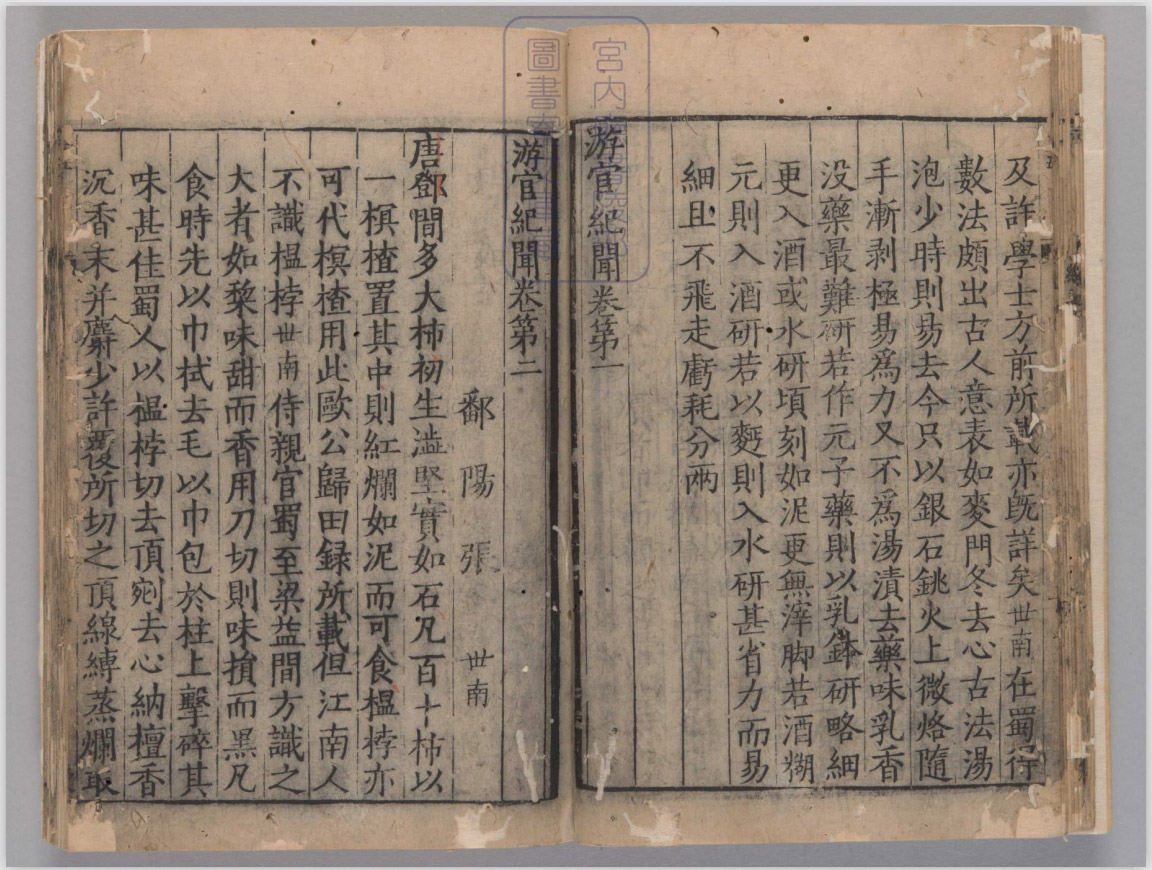 及許學士方前所載亦既詳矣世南在蜀得
數法頗出古人意表如麥門冬去心古法湯
泡少時則易去今只以銀石銚火上微烙隨
手漸剥極易為力又不為湯漬去藥味乳香
没藥最難研若作元子藥則以乳鉢研略細
更入酒或水研頃刻如泥更無滓脚若酒糊
元則入酒研若以麪則入水研甚省力而易
細且不飛走虧耗分兩
游宦紀聞卷第一
游宦紀聞卷第二
鄱陽張世南
唐鄧間多大柿初生澁堅實如石凡百十柿以
一榠楂置其中則紅爛如泥而可食榲桲亦
可代榠楂用此歐公歸田録所載但江南人
不識榲桲世南侍親官蜀至梁益間方識之
大者如棃味甜而香用刀切則味損而黑凡
食時先以巾拭去毛以巾包於柱上擊碎其
味甚佳蜀人以榲桲切去頂剜去心納檀香
沉香末并麝少許覆所切之頂線縛蒸爛取
宮內
圖書